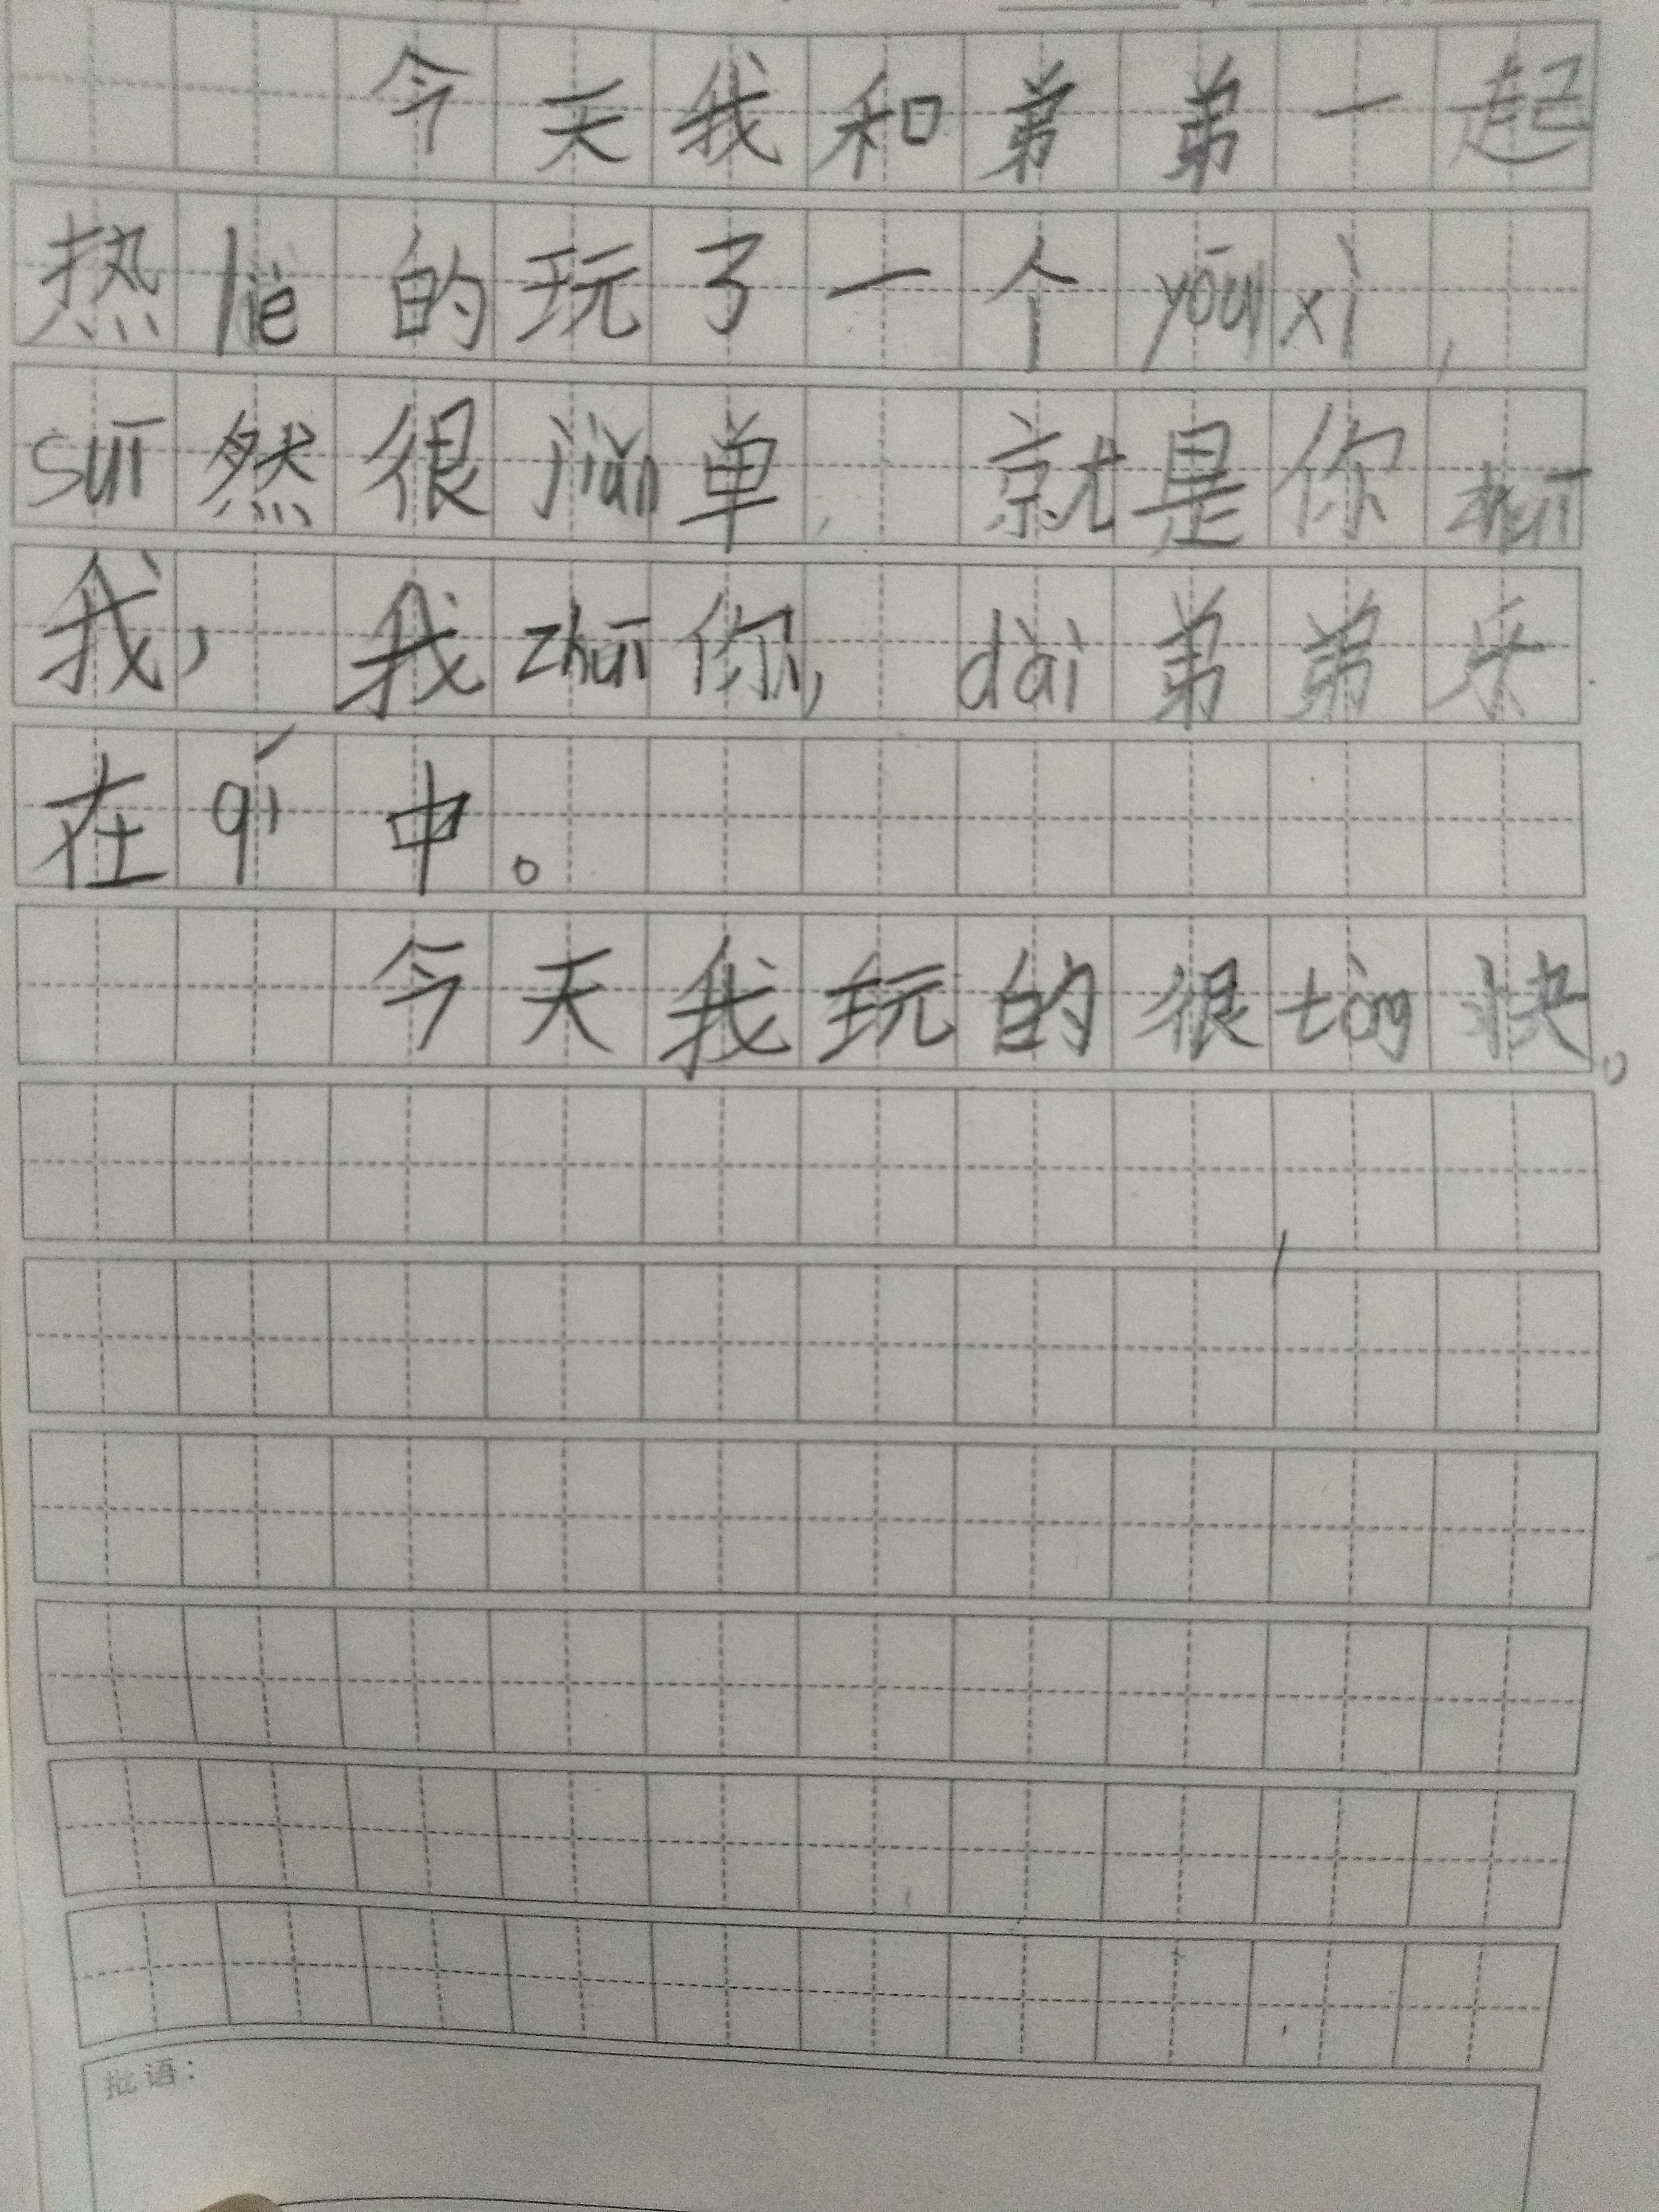 今天我和弟弟一起
热liè的玩了一个yōuxì,
suī然很jiǎn单,就是你zhuī
我,我zhuī你,dài弟弟乐
在qí中。
今天我玩的很tòng快。
批语: